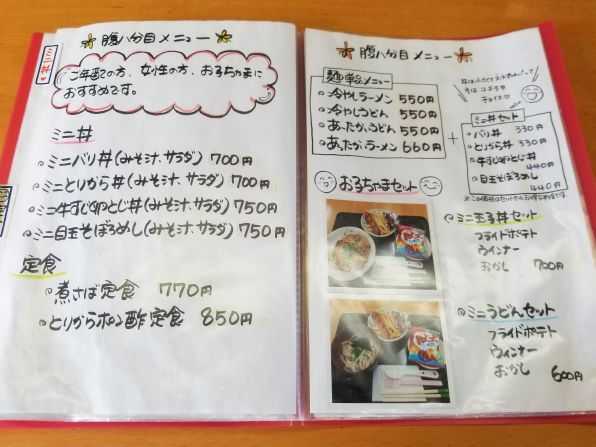 腹八分目メニュー
ご年配の方、女性の方、お子ちゃまに
おすすめです。
ミニ丼
ミニ丼
ミニバリ丼(みそ汁、サラダ) 700円
ミニとりから丼(みそ汁、サラダ) 700円
ミニ牛すじ卵とじ丼(みそ汁、サラダ) 750円
ミニ目玉そぼろめし(みそ汁、サラダ) 750円
定食
煮さば定食 770円
とりからポン酢定食 850円
腹八分目メニュー
麺単品メニュー
冷やしラーメン 550円
冷やしうどん 550円
あったかいうどん 550円
あったかラーメン 660円
+
ミニ丼セット
バリ丼 330円
とりから丼 330円
牛すじ卵とじ丼 440円
目玉そぼろめし 440円
お子ちゃまセット
ミニ玉子丼セット
フライドポテト
ウィンナー
おかし 700円
ミニうどんセット
フライドポテト
ウィンナー
おかし 600円